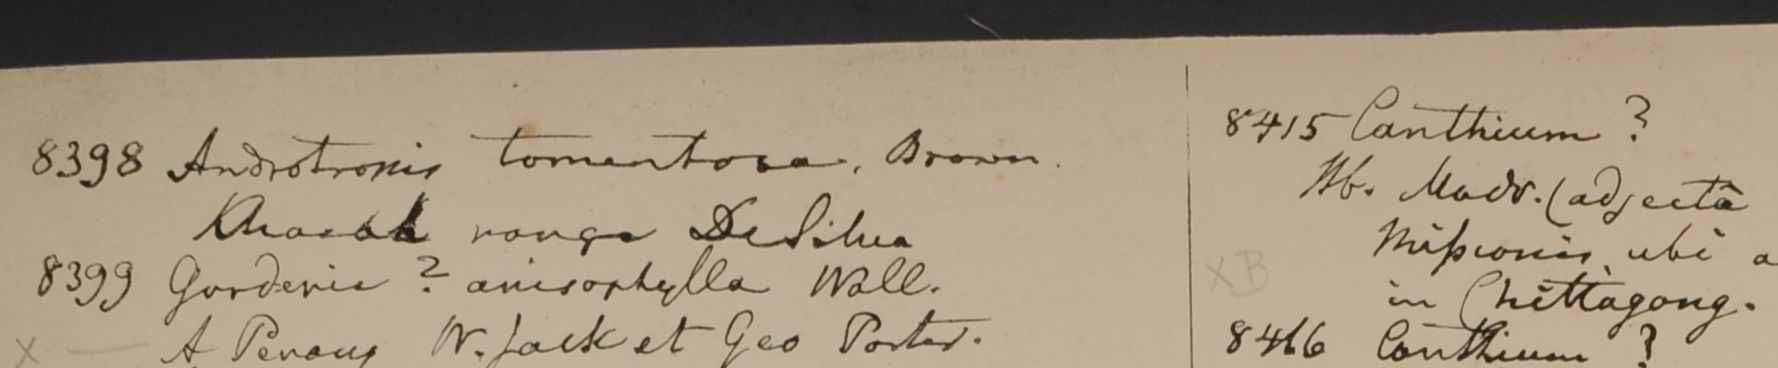 8398 Androtropis tomentosa. Brown.
range DeSilva
8399 Gardenia ? anisophylla Wall.
x — A Penang W. Jack et Geo Porter.
8415 Canthium ?
Hb. Madr. (adjectâ
Missionis ubi a
x B
in Chittagong.
8416 Canthium ?